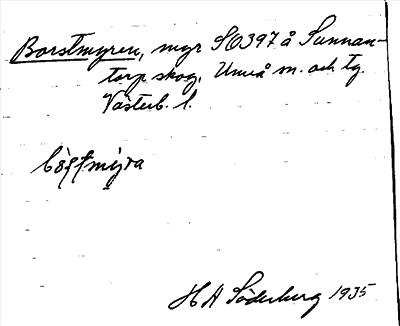 Borstmyren, myr SO397 å Sunnan-
torp skog, Umeå m. och tg.
Västerb. l.
H A Söderberg 1935